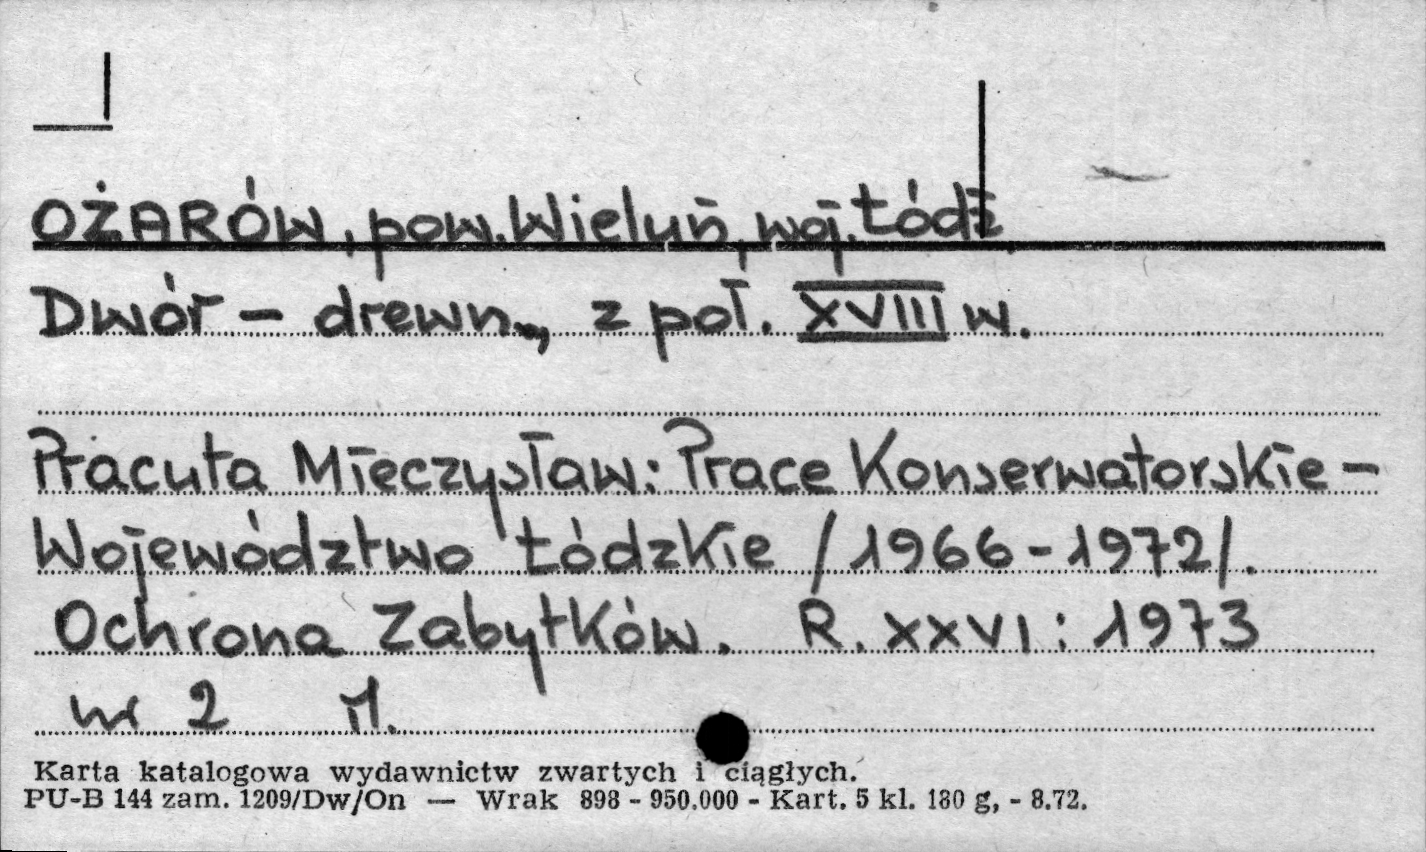 OŻARÓW, pow. Wieluń, woj. Łódź
Dwór – drewn., z poł. XVIII w.
Pracuta Mieczysław: Prace Konserwatorskie –
Województwo Łódzkie /1966-1972/.
Ochrona Zabytków. R. XXVI: 1973
nr 2 il.
Karta katalogowa wydawnictw zwartych i ciągłych.
PU-B 144 zam. 1209/Dw/On — Wrak 898 - 950.000 - Kart. 5 kl. 180 g, - 8.72.